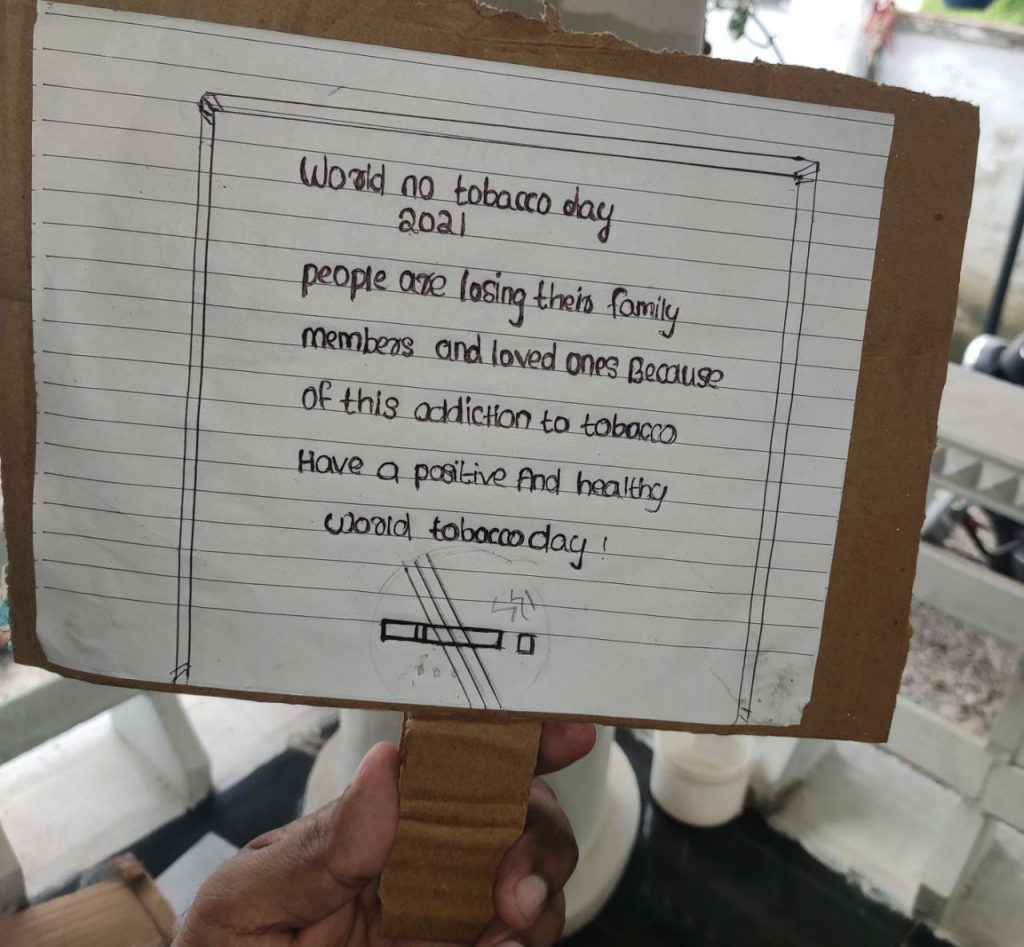 World no tobacco day
2021
people are losing their family
members and loved ones Because
of this addiction to tobacco
Have a positive And healthy
World tobacco day!